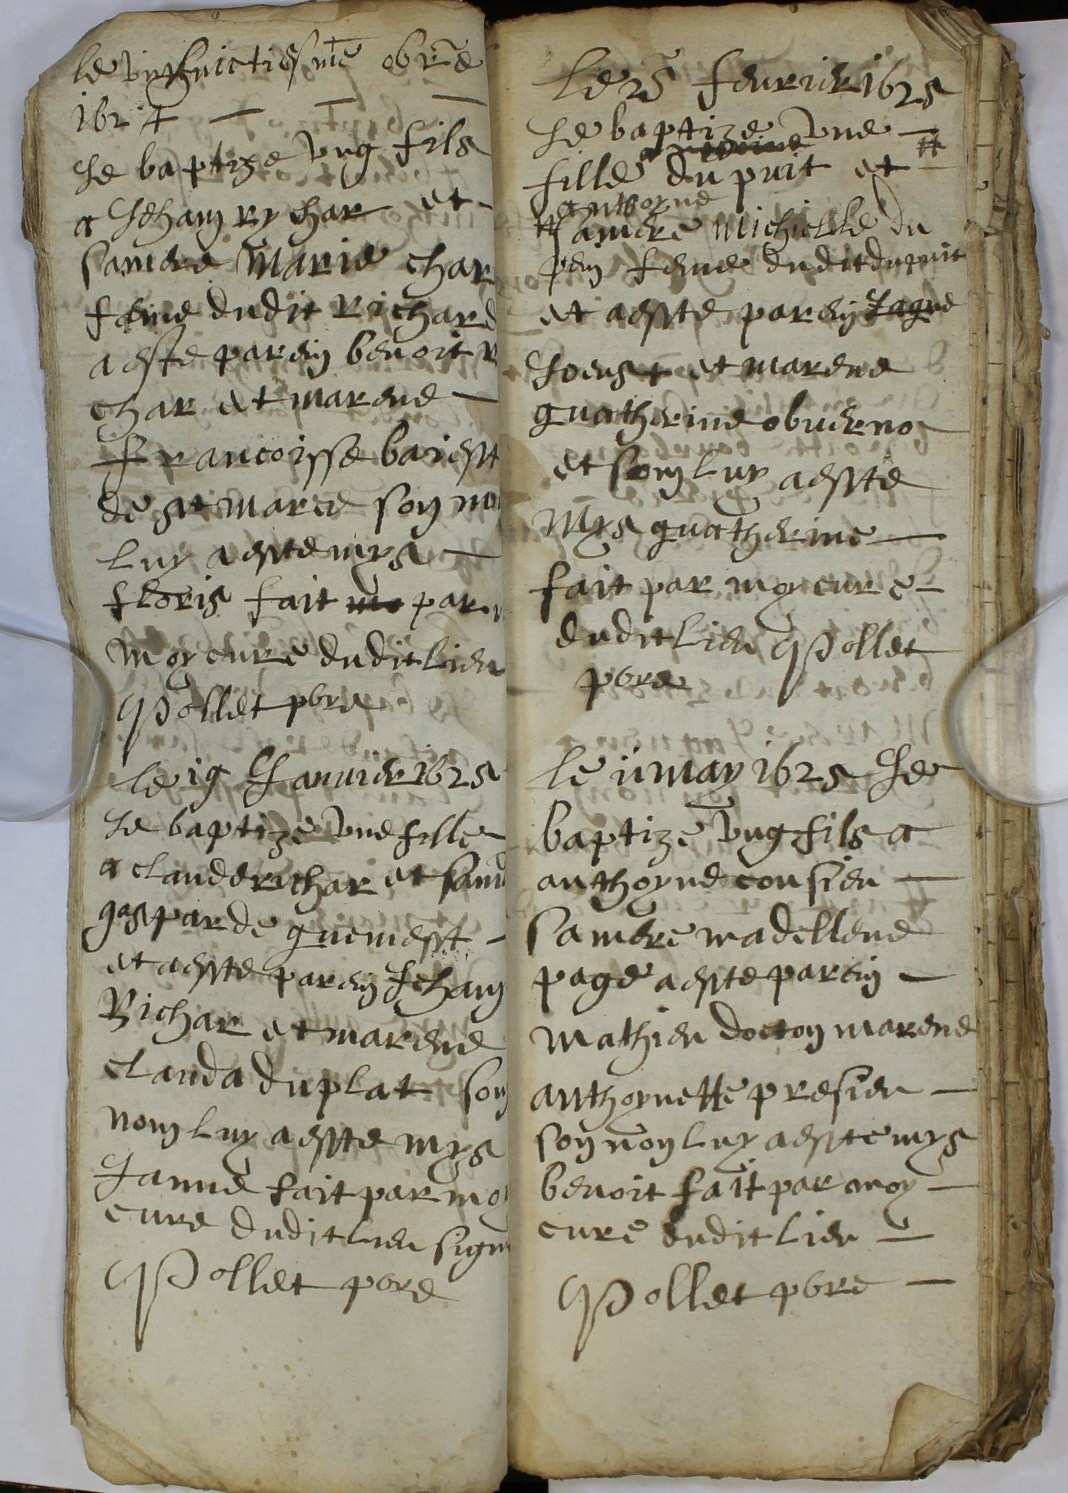 le vingt huictiesme obre
1624
Je baptize ung fils
a Jehan rychar et
sa mere Marie char
feme dudit Richard
a este parein benoit R
char et marene
Francoisse baiesst
de st marce son no
luy a esste mys
floris fait par
moy cure dudit lieu
Pollet pbre
le 19 Janvier 1625
Je baptize une fille
a claude richar et
gasparde guemesst
et a esste parein Jehan
Richar et marene
clauda duplat son
nom luy a esste mys
Janne fait par mo
cure dudit lieu sign
Pollet pbre
le 25 fevrier 1625
Je baptize une
fille dupuit et #
anthoyne
# sa mere Michielle du
feme dudit dupuit
et a esste parein Jaque
et marene
guatherine
et som luy a esste
Mys guatherine
fait par moy cure
dudit lieu Pollet
pbre
le 11 may 1625 Je
baptize ung fils a
anthoyne cousieu
sa mere madellene
page a esste parein
Mathieu docton marene
anthoynette presieu
son nom luy a esste mys
benoit fait par moy
cure dudit lieu
Pollet pbre